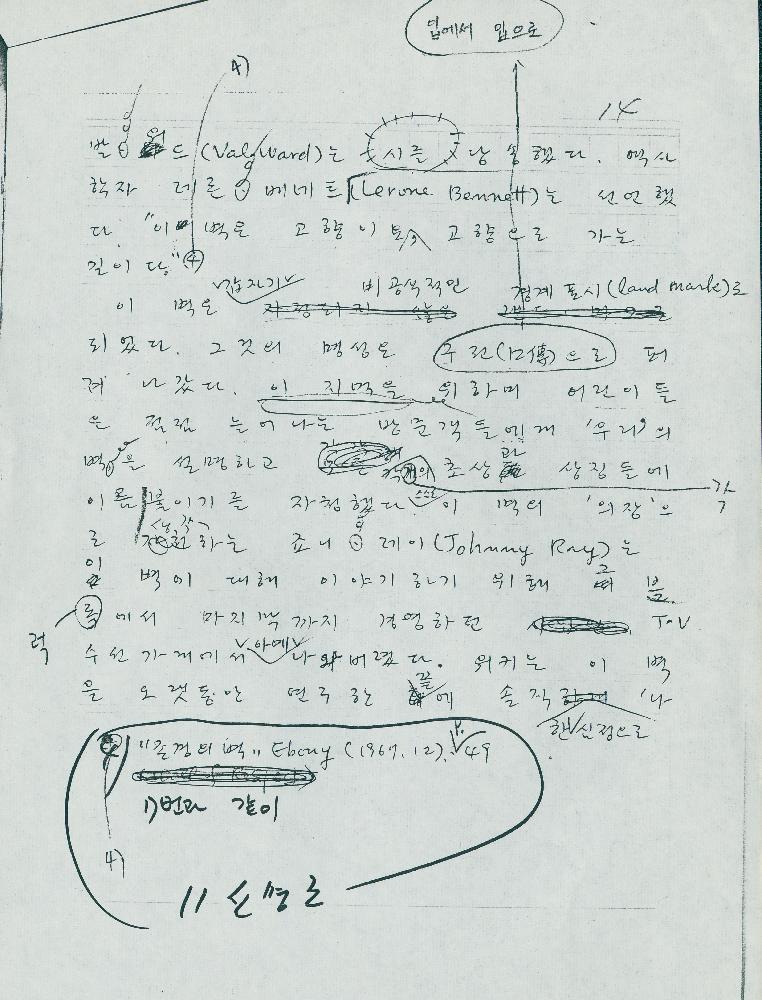 입에서 입으로
4)
14
발 워드(Val Ward)는 시를 낭송했다. 역사
학자 레른 베네트(Lerone Bennett)는 선언했
다. "이 벽은 고향이 고향으로 가는
길이다." 4
이 벽은 갑자기 비공식적인 경계 표시(land mark)로
되었다. 그것의 명성은 구전(口傳)으로 퍼
져 나갔다. 이 지역을 위하며 어린이들
은 점점 늘어나는 방문객들에게 '우리'의
벽을 설명하고 조상과 상징들에
이름붙이기를 자청했다. 스스로 이 벽의 '의장'으
로 생각하는 죠니 레이(Johnny Ray)는
이 벽에 대해 이야기하기 위해 그 블
럭에서 마지막까지 경영하던 T.V
수선가게에서 아예 나와버렸다. 워키는 이 벽
을 오랫동안 연구한 끝에 솔직한 심정으로 '나
"존경의 벽" Ebony (1967. 12). p. 49
1)번과 같이
4)
11